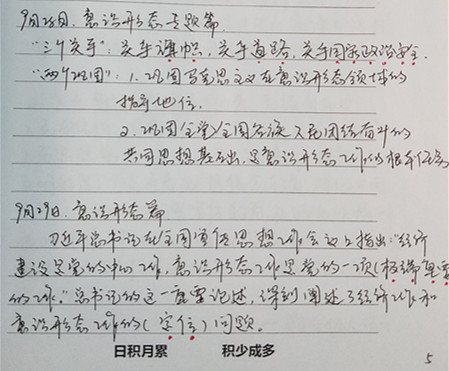 9月28日，意识形态专题篇
"三个关乎"：关乎旗帜，关乎道路，关乎国家政治安全.
"两个巩固"：1.巩固马克思主义在意识形态领域的
指导地位.
2.巩固全党/全国各族人民团结奋斗的
共同思想基础，是意识形态工作的根本任务
9月29日，意识形态篇
习近平总书记在全国宣传思想工作会议上指出："经济
建设是党的中心工作，意识形态工作是党的一项(极端重要
的工作."总书记的这一重要论述，深刻阐述了经济工作和
意识形态工作的(定位)问题。
日积月累 积少成多
5